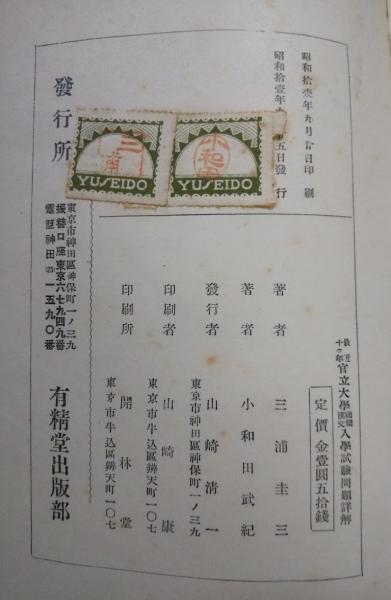 昭和拾壹年九月廿日印刷
昭和拾壹年
五日發行
最近十ヶ年官立大學國語漢文入學試驗問題詳解
定價金壹圓五拾錢
著者 三浦圭三
著者 小和田武紀
發行者 山崎清一
東京市神田區神保町一ノ三九
印刷者 山崎康
東京市牛込區辨天町一〇七
印刷所 開林堂
東京市牛込區辨天町一〇七
發行所
東京市神田區神保町一ノ三九
振替口座東京六七九四九番
電話神田(25)一五九〇番
有精堂出版部
YUSEIDO
三浦
YUSEIDO
小和田